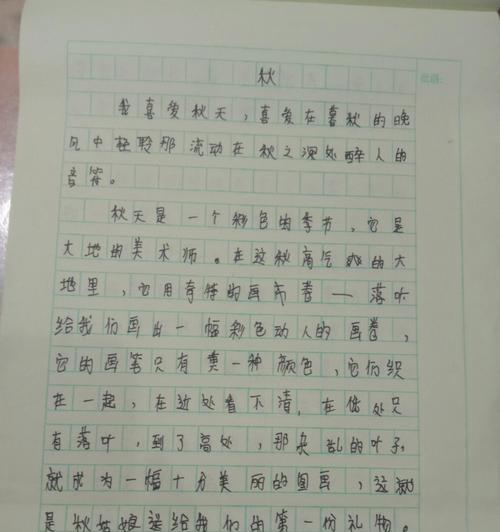 批语:
秋
我喜爱秋天,喜爱在暮秋的晚
风中轻聆那流动在秋之深处醉人的
音符。
秋天是一个彩色的季节,它是
大地的美术师。在这秋高气爽的大
地里,它用奇特的画布卷——落叶
给我们画出一幅彩色动人的画卷,
它的画笔只有一种颜色,它们织
在一起,在近处看下清,在低处只
有落叶,到了高处,那杂乱的叶子,
就成为一幅十分美丽的图画,这就
是秋姑娘送给我们的第一份礼物。